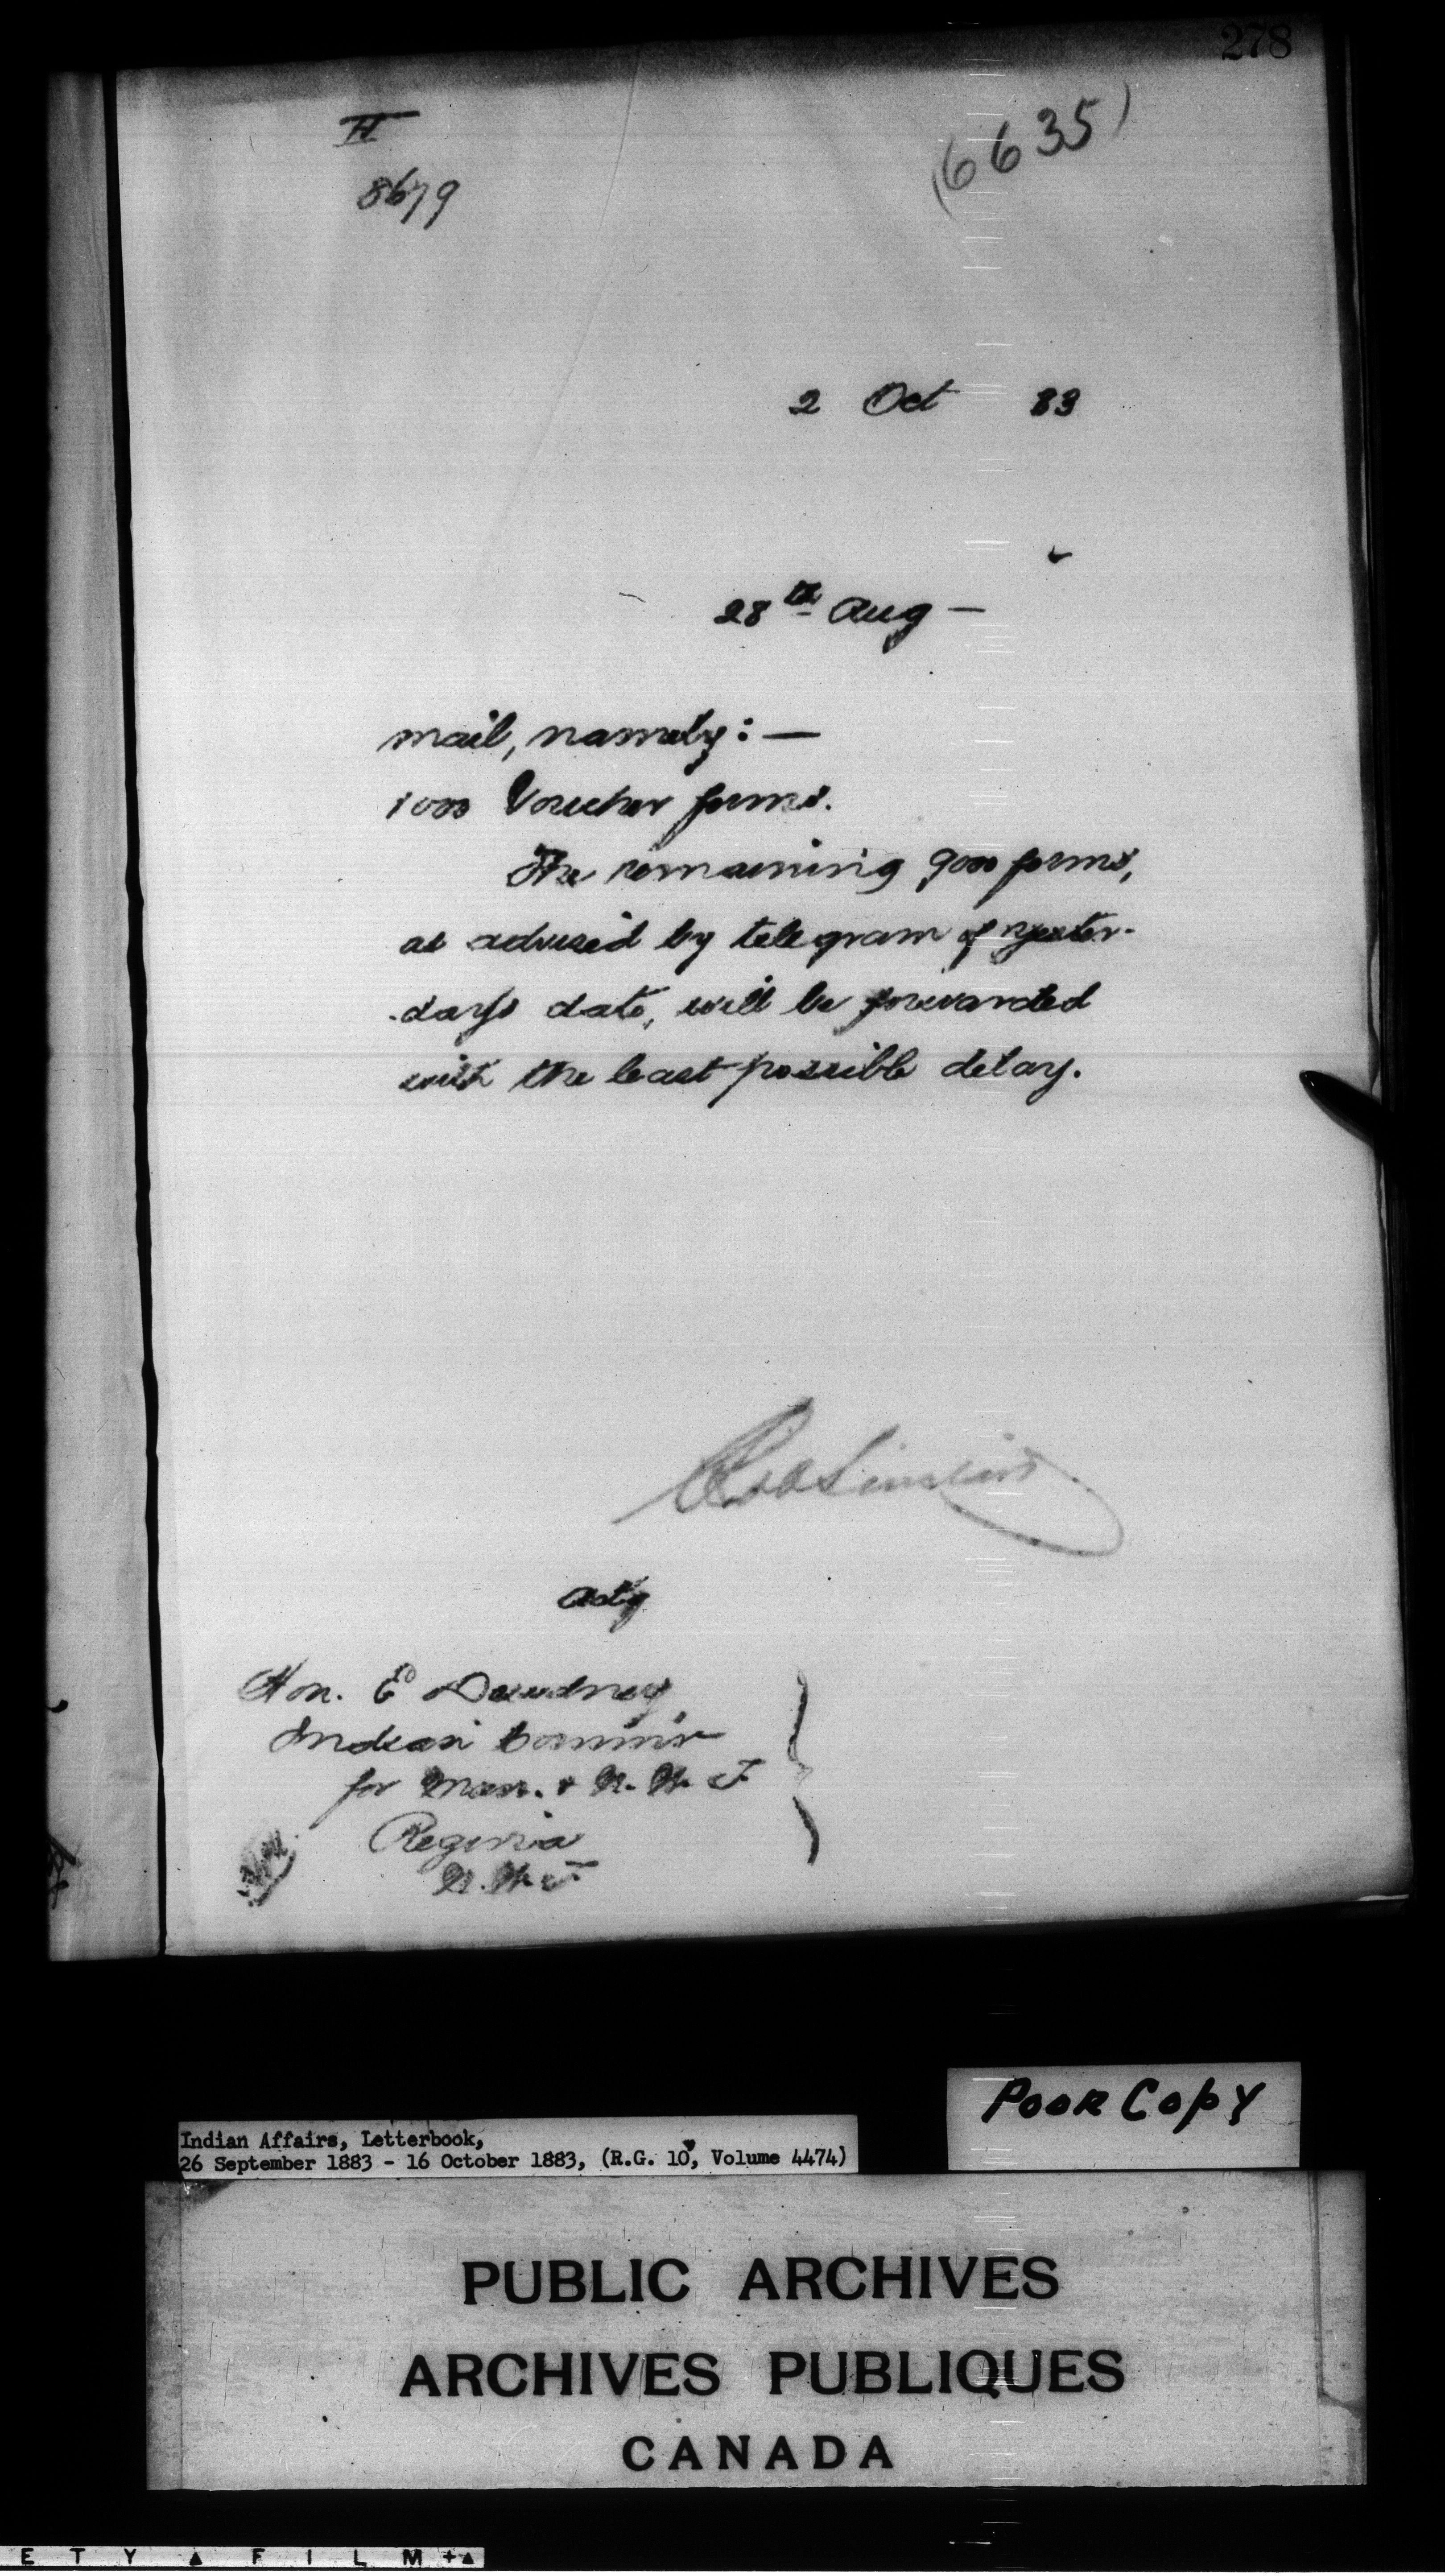 278
H
8679
(6635)
2 Oct 83
28th Aug —
mail, namely: —
1000 Voucher forms.
The remaining 9000 forms,
as advised by telegram of yester-
-day's date, will be forwarded
with the least possible delay.
Acty
Hon. E Dewdney
Indian Commr
for Man. & N. W. T
Regina
N. W. T
Poor Copy
Indian Affairs, Letterbook,
26 September 1883 - 16 October 1883, (R.G. 10, Volume 4474)
PUBLIC ARCHIVES
ARCHIVES PUBLIQUES
CANADA
E T Y ▲ F I L M + ▲